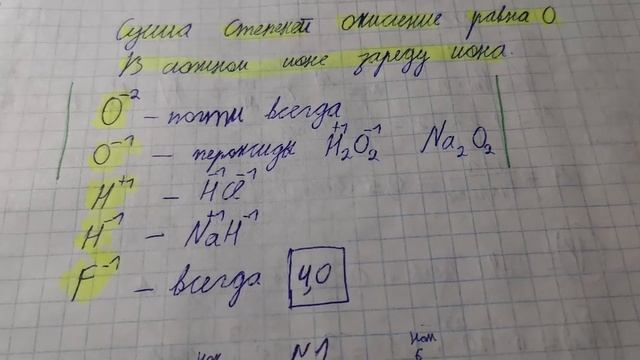 Сумма степеней окисление равна 0
В сложном ионе заряду иона.
O⁻² – почти всегда
O⁻¹ – пероксиды H₂⁺¹O₂⁻¹ Na₂O₂
H⁺¹ – H⁺¹Cl⁻¹
H⁻¹ – Na⁺¹H⁻¹
F⁻¹ – всегда 4,0
N1